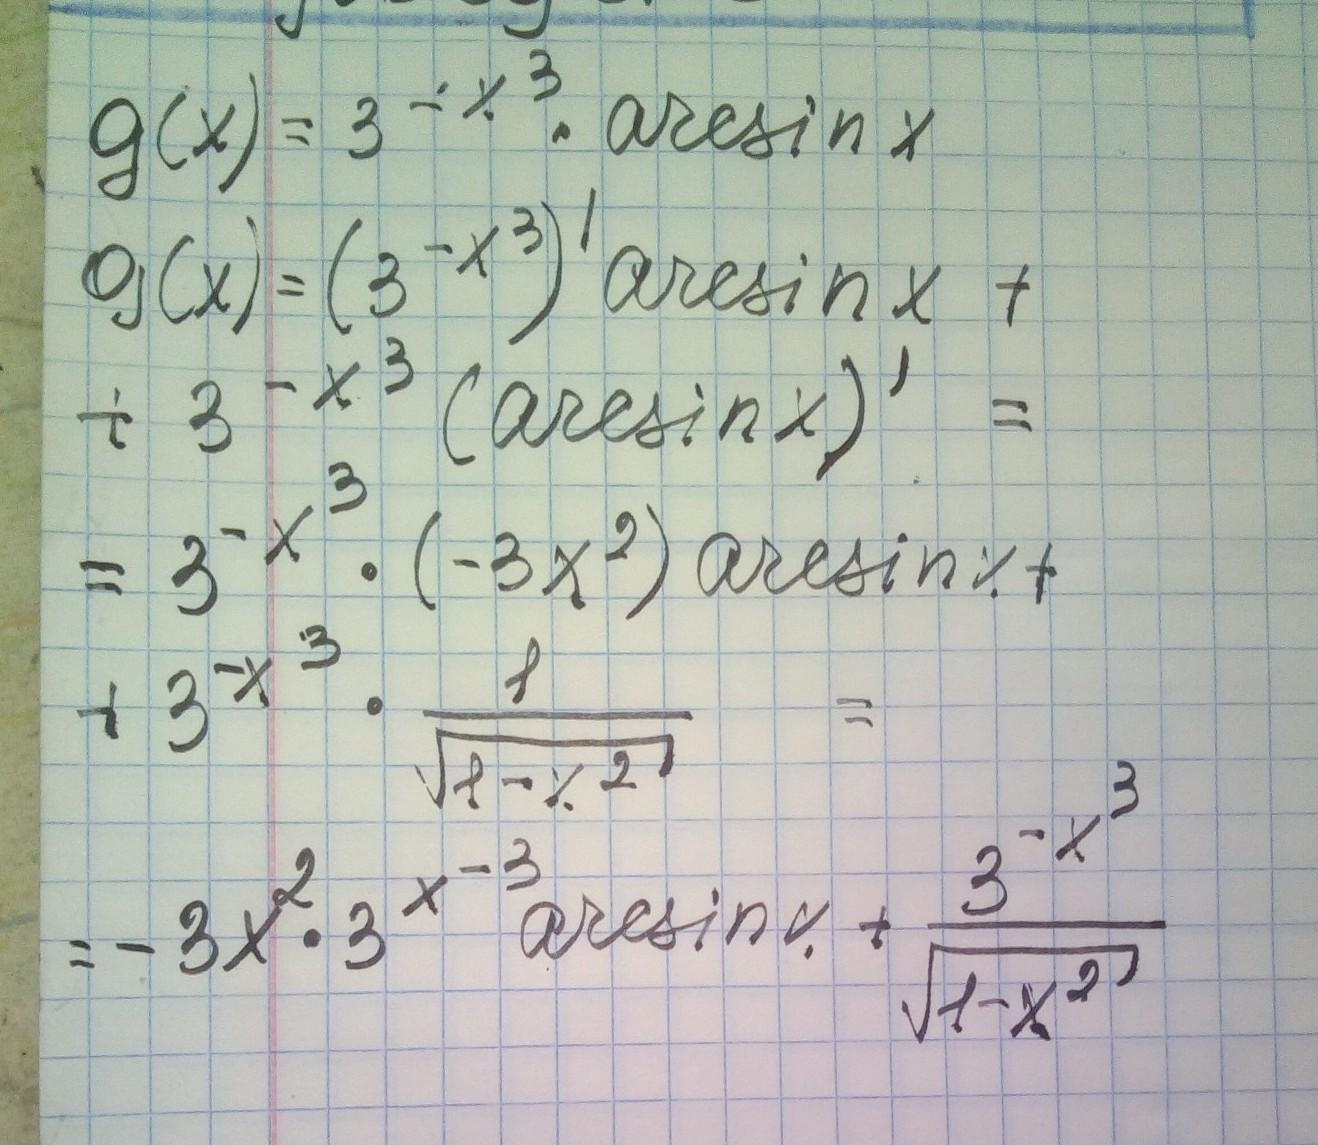 g(x) = 3^{-x^3} · arcsin x
g(x) = (3^{-x^3})' arcsin x +
+ 3^{-x^3} (arcsin x)' =
= 3^{-x^3} · (-3x^2) arcsin x +
+ 3^{-x^3} · \frac{1}{\sqrt{1-x^2}} =
= -3x^2 · 3^{x^{-3}} arcsin x + \frac{3^{-x^3}}{\sqrt{1-x^2}}